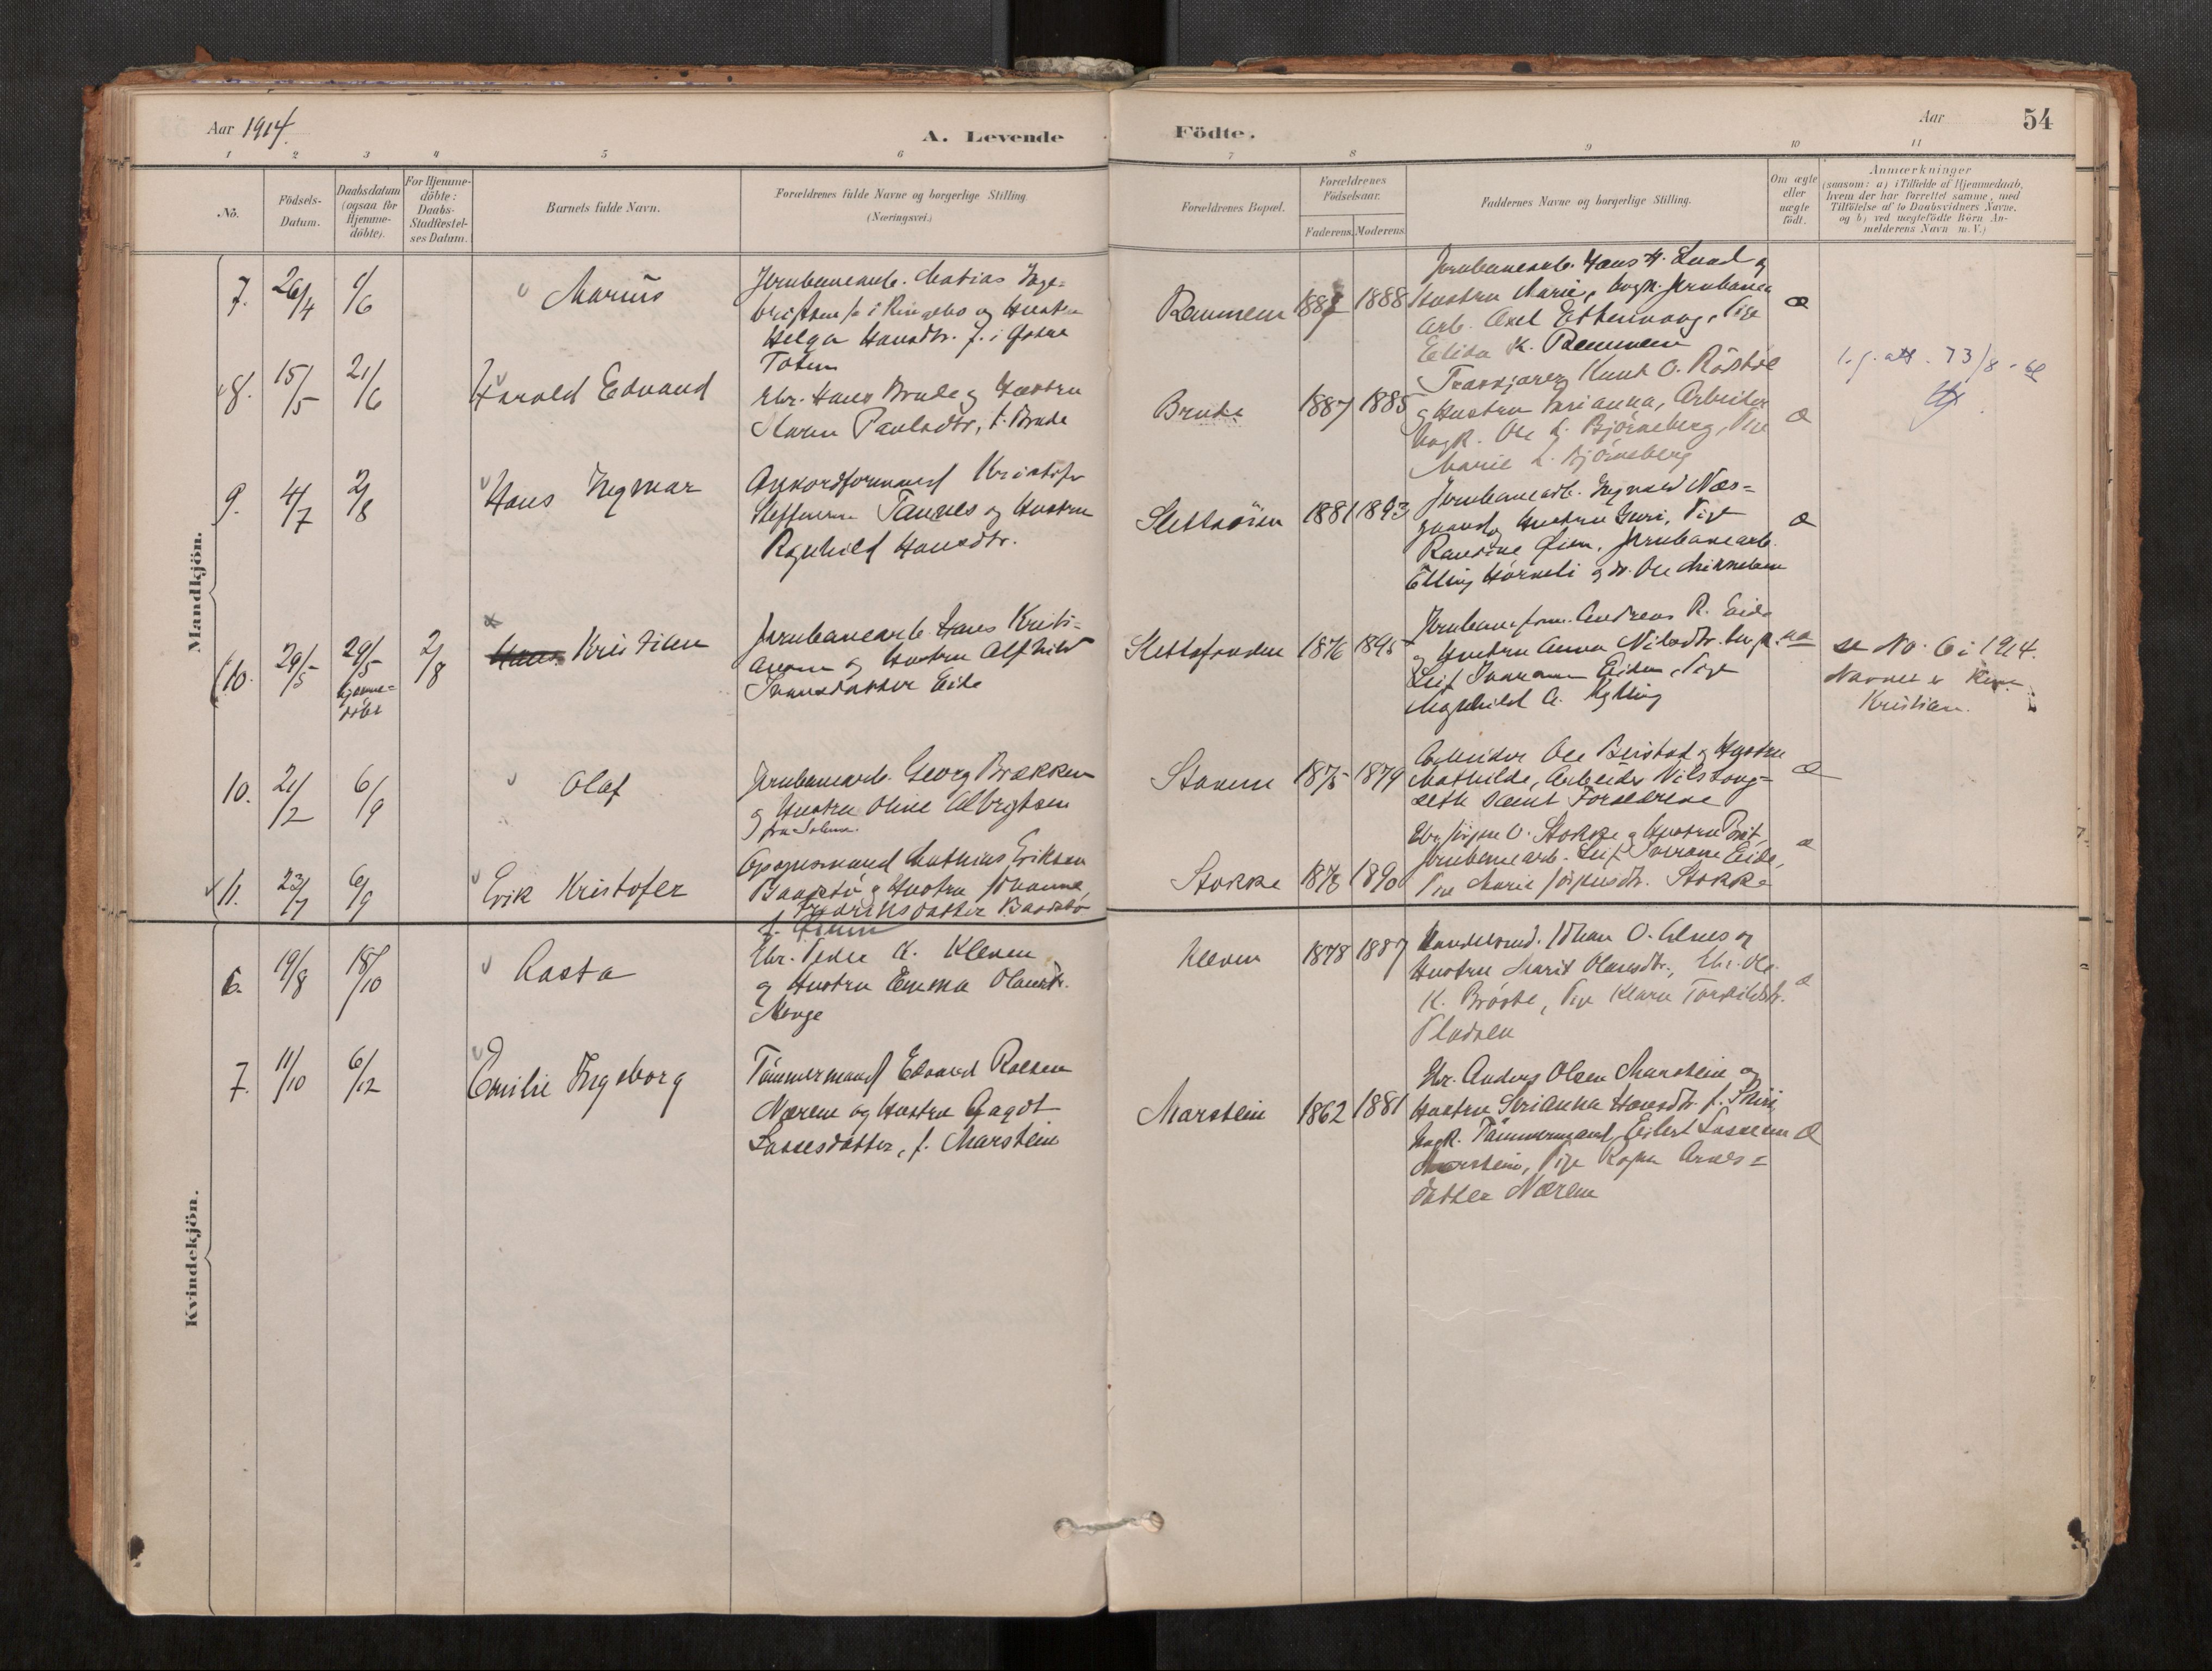 Aar 1914.
A. Levende
Födte.
Aar
54
1 2 3 4 5 6 7 8 9 10 11
No.
Födsels-
Datum.
Daabsdatum
(ogsaa for
Hjemme-
döbte).
For Hjemme-
döbte:
Daabs-
Stadfæstel-
ses Datum.
Barnets fulde Navn.
Forældrenes fulde Navne og borgerlige Stilling.
(Næringsvei.)
Forældrenes Bopæl.
Forældrenes
Födselsaar.
Faderens. Moderens.
Faddernes Navne og borgerlige Stilling.
Om ægte
eller
uægte
födt.
Anmærkninger
(saasom: a) i Tilfælde af Hjemmedaab,
hvem der har forrettet samme, med
Tilföielse af to Daabsvidners Navne,
og b) ved uægtefödte Börn An-
melderens Navn m. V.)
Mandkjön.
7. 26/4 1/6
Marius
Jernbanearb. Matias Inge-
brigtsen f. i Ringebo og Hustru
Helga Hansdtr. f. i Østre
Toten
Remmem 1888
Jernbanearb. Hans H. Lund og
Hustru Marie, ungk. Jernbane
arb. Axel Ettenvoog, Pige
Elida K. Remmem
æ
8. 15/5 21/6
Harold Edvard
Ebr. Hans Brude og Hustru
Karen Paulsdtr, f. Brude
Brude 1887 1885
Knut O. Röshöl
og Hustru Brianna, Arbeider
ungk. Ole L. Björneberg, Pige
Marie L. Björneberg
æ
9. 4/7 2/8
Hans Ingmar
Akkordformand Kristofer
Steffensen Tannes og Hustru
Ragnhild Hansdtr.
Slettaöien 1881 1893
Jernbanearb. Ingvald Næs-
gaard og Hustru Guri, Pige
Randine Øien, Jernbanearb.
Elling Horneli og do. Ole Mikkelsen
æ
10. 29/5 29/5
hjemme-
döbt
2/8
Hans Kristian
Jernbanearb. Hans Kristi-
ansen og Hustru Alfhild
Ivarsdatter Eide
Slettafonden 1876 1895
Jernbaneform. Andreas R. Eide
og Hustru Anna Nilsdtr. ungk.
Leif Ivarsen Eiden, Pige
Magnhild A. Kylling
ua
se No. 6 i 1914.
Navnet er kun
Kristian.
10. 21/2 6/9
Olaf
Jernbanearb. Georg Brækken
og Hustru Oline Albrigtsen
Stavem 1875 1879
Arbeider Ole Beistad og Hustru
Mathilde, Arbeider Nils Bong-
seth samt Forældrene
æ
11. 23/7 6/9
Erik Kristofer
Opsynsmand Mathias Eriksen
Baardsbö og Hustru Johanne
Fredriksdatter Baardsbö
Stokke 1878 1890
Ebr. Jörgen O. Stokke og Hustru Brit,
Jernbanearb. Leif Ivarsen Eide,
Pige Marie Jörgensdtr. Stokke
æ
Kvindekjön.
6. 19/8 18/10
Aasta
Ebr. Peder K. Kleven
og Hustru Emma Olausdtr.
Monge
Kleven 1878 1887
Handelsmd. Johan O. Alnes og
Hustru Marit Olausdtr., Ebr. Ole
K. Bröste, Pige Klara Torkildsdtr.
Pladsen
æ
7. 11/10 6/12
Emilie Ingeborg
Tömmermand Edvard Rolsen
Nærem og Hustru Gagat
Lassesdatter, f. Marstein
Marstein 1862 1881
Ebr. Anders Olsen Marstein og
Hustru Serianna Hansdtr. f. Skiri,
ungk. Tömmermand Eilert Lassesen
Marstein, Pige Ragna Arnes-
datter Nærem
æ